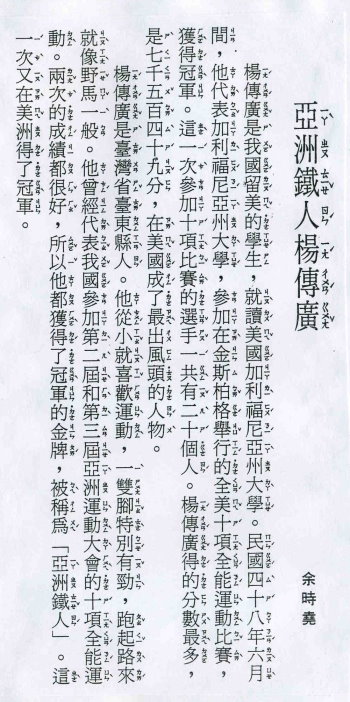 亞洲鐵人楊傳廣
余時堯
楊傳廣是我國留美的學生，就讀美國加利福尼亞州大學。民國四十八年六月
間，他代表加利福尼亞州大學，參加在金斯柏格舉行的全美十項全能運動比賽，
獲得冠軍。這一次參加十項比賽的選手一共有二十個人。楊傳廣得的分數最多，
是七千五百四十九分，在美國成了最出風頭的人物。
楊傳廣是臺灣省臺東縣人。他從小就喜歡運動，一雙腳特別有勁，跑起路來
就像野馬一般。他曾經代表我國參加第二屆和第三屆亞洲運動大會的十項全能運
動。兩次的成績都很好，所以他都獲得了冠軍的金牌，被稱爲「亞洲鐵人」。這
一次又在美洲得了冠軍。